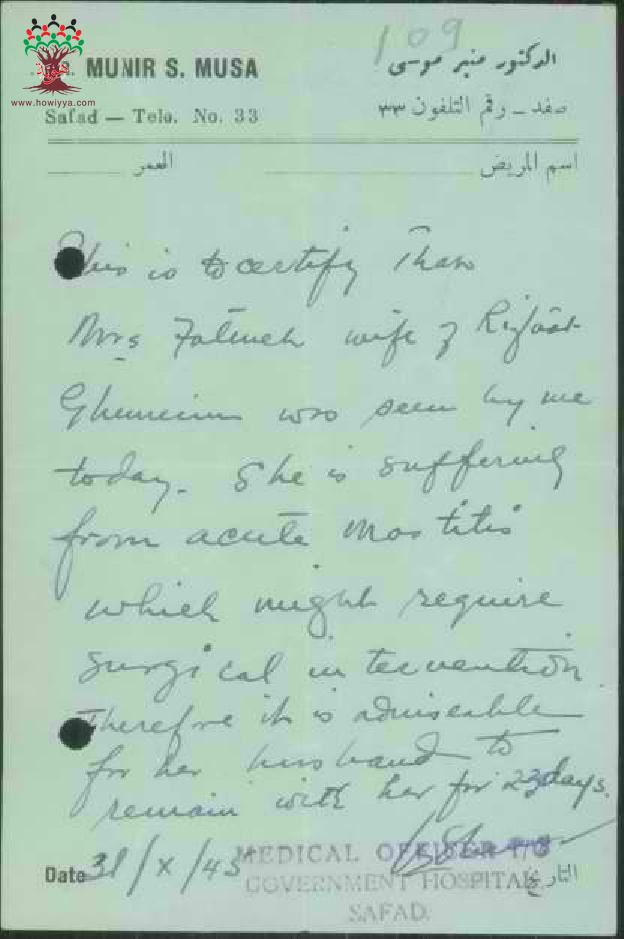 109
MUNIR S. MUSA
الدكتور منير موسى
www.howiyya.com
Safad — Tele. No. 33
صفد - رقم التلفون ٣٣
اسم المريض
العمر
This is to certify that
Mrs Fatmeh wife of Rifaat
Ghuneim was seen by me
today. She is suffering
from acute mastitis
which might require
surgical intervention
Therefore it is adviseable
for her husband to
remain with her for days.
Date 31/X/45
MEDICAL OFFICER I/C
GOVERNMENT HOSPITAL
SAFAD.
التاريخ